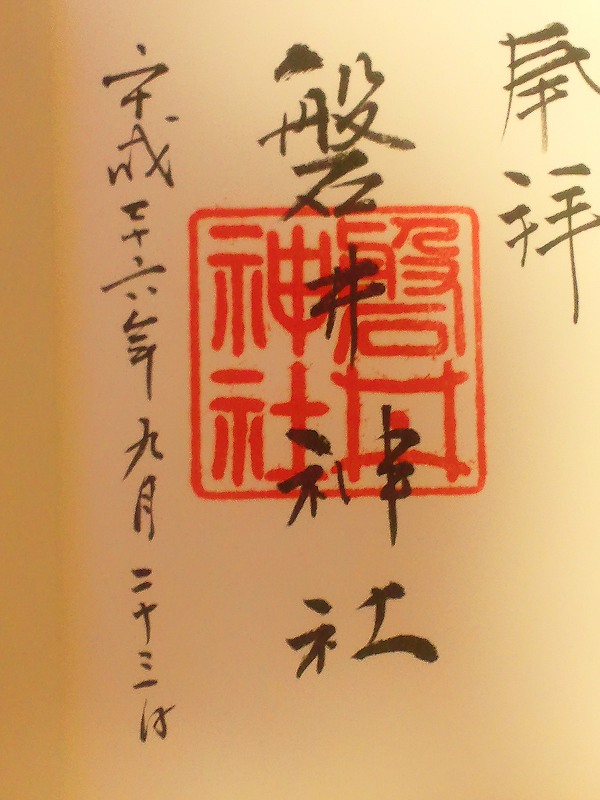 奉拝
磐井神社
磐井神社
平成二十六年九月二十三日